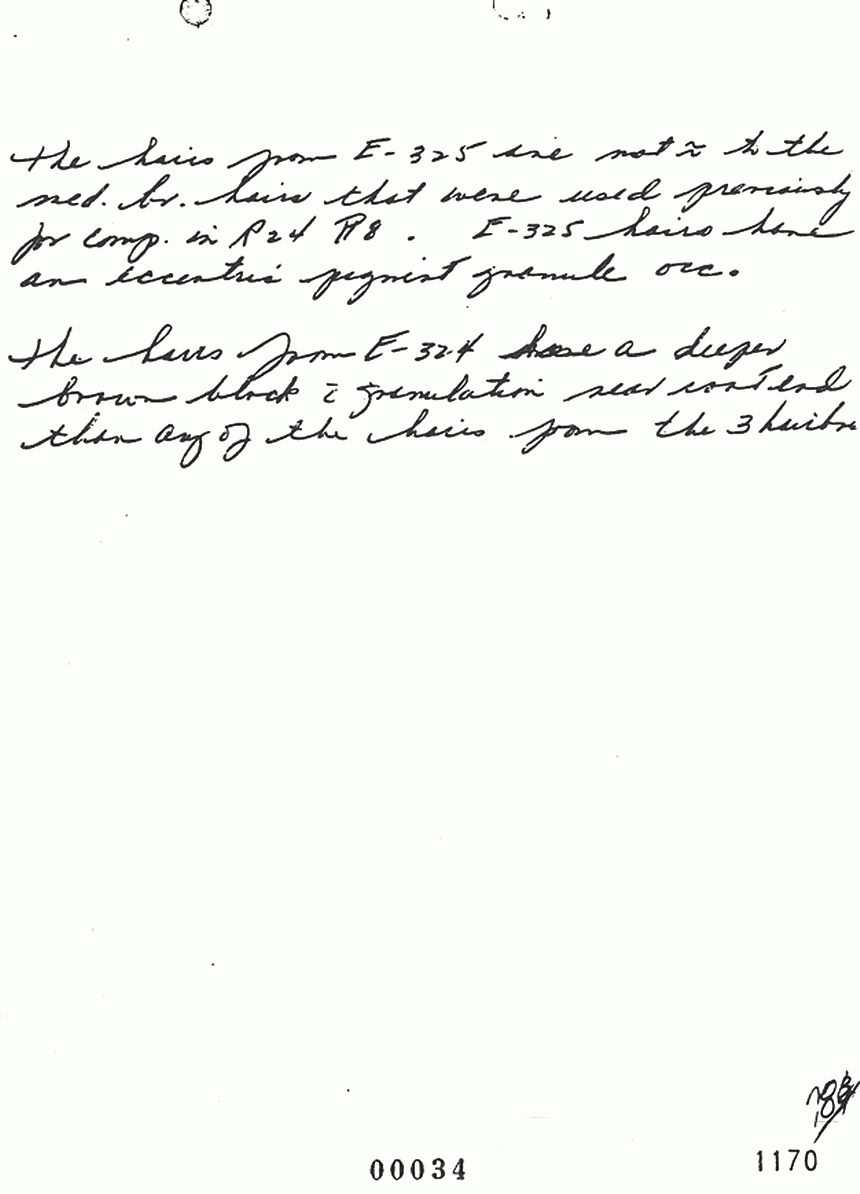 The hairs from E-325 are not ≈ to the
med. br. hairs that were used previously
for comp. in R24 PH8. E-325 hairs have
an eccentric pigment granule occ.
The hairs from E-324 have a deeper
brown black c̄ granulation near root end
than any of the hairs from the 3 hairbr
00034
1170